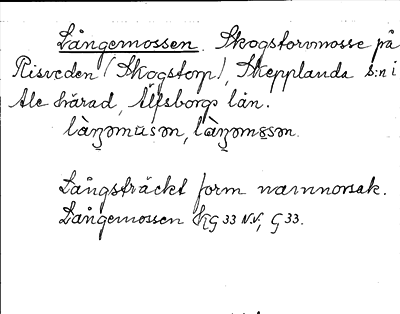 Långemossen. Skogstorvmosse på
Risveden (Skogstorp), Skepplanda s:n i
Ale härad, Älfsborgs län.
làŋəmüsən, làŋəmɞsən.
Långsträckt form namnorsak.
Långemossen KG 33 N.V., G 33.